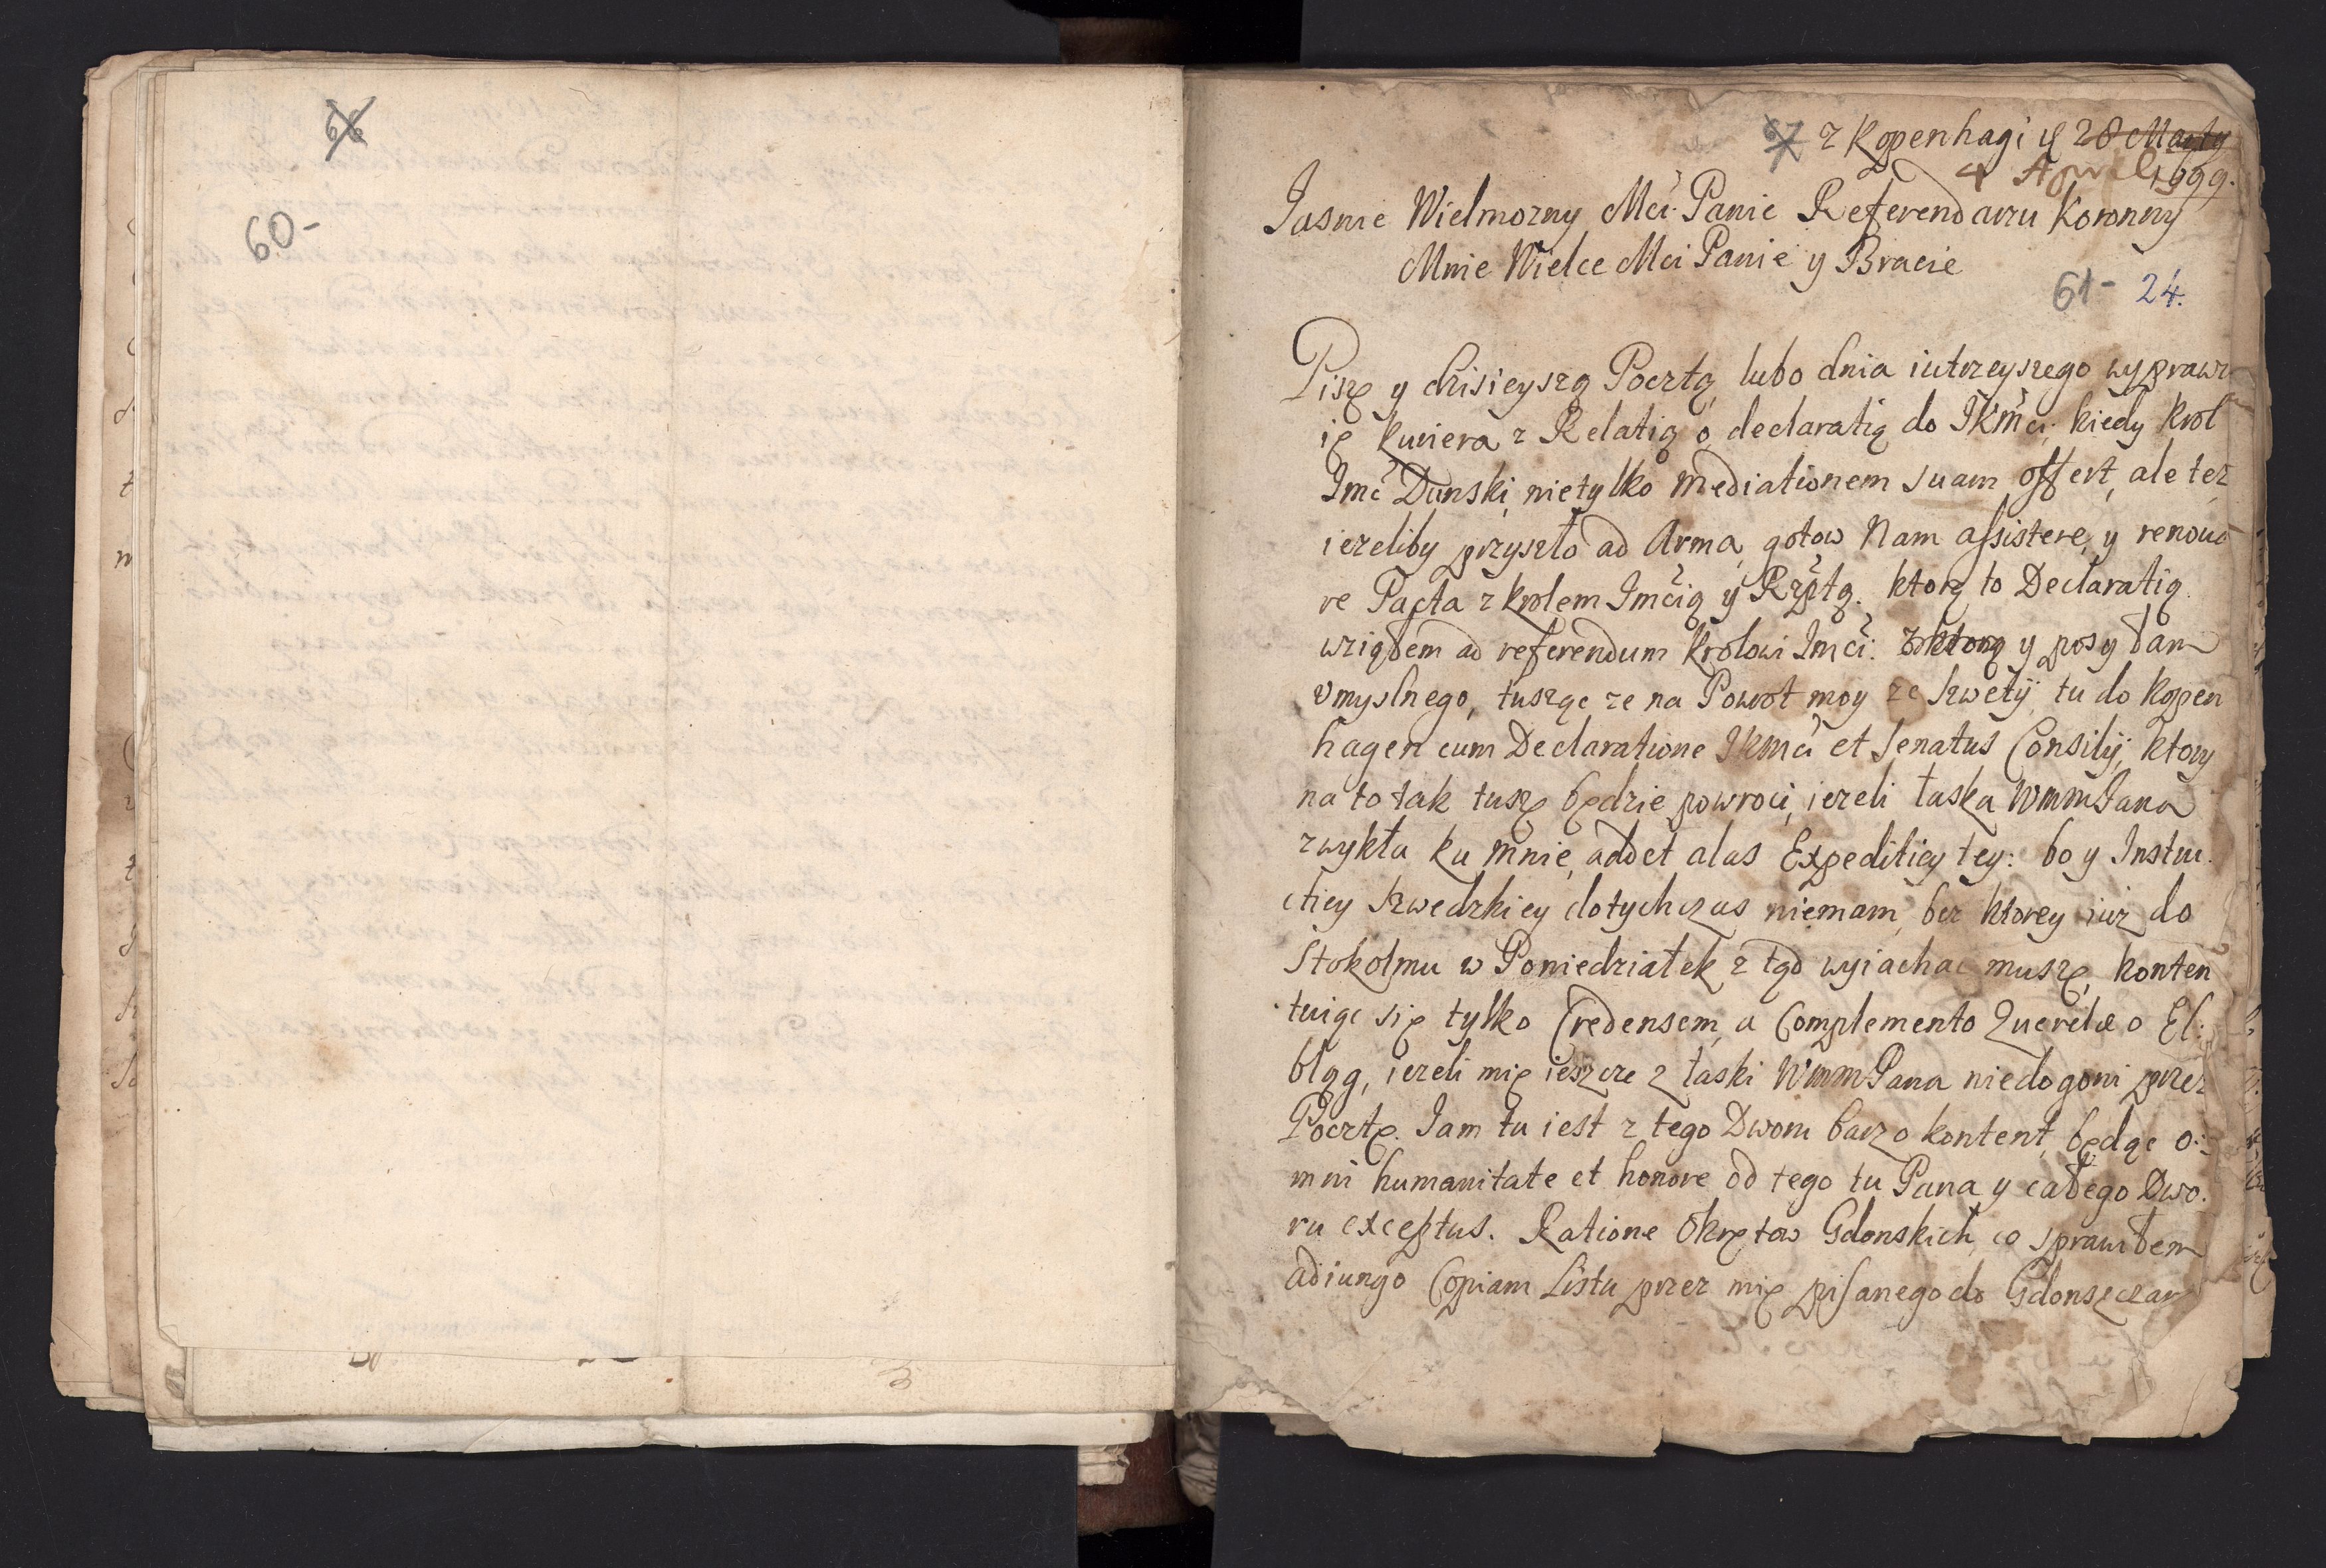 66
60-
67 z Kopenhagi d 28 Marty
4 Aprilis 1699.
Jasnie Wielmozny Mci Panie Referendarzu Koronny
Mnie Wielce Mci Panie y Bracie
61- 24.
Piszę y dzisieyszą Pocztą, lubo dnia iutrzeyszego wyprawu
ię Kuriera z Relatią o declaratią do JKMci, kiedy Krol
Jmć Dunski, nietylko mediationem suam offert, ale też
iezeliby przyszło ad Arma, gotow Nam assistere, y renoua
re Pacta z Krolem Jmcią y Rzptą. ktorą to Declaratią
wziąłem ad referendum Krolowi Jmci. y posyłam
vmyslnego, tusząc ze na Powrot moy ze Szwetÿ tu do Kopen
hagen cum Declaratione JKMci et Senatus Consilÿ, ktory
na to tak tuszę będzie powroci, iezeli łaska WmmPana
zwykła ku mnie, addet alas Expeditiey tey: bo y Instru.
ctiey Szwedzkiey dotychczas niemam, bez ktorey iuz do
Stokolmu w Poniedziałek z tąd wyiachac muszę, konten
tuiąc się tylko Credensem, a Complemento Querelæ o El:
bląg, iezeli mię ieszcze z łaski WmmPana niedogoni przez
Pocztę. Jam tu iest z tego Dworu barzo kontent, będąc o:
mni humanitate et honore od tego tu Pana y całego Dwo.
ru exceptus. Ratione Okrętow Gdonskich, co sprawiłem
adiungo Copiam Listu przez mię pisanego do Gdonszczan